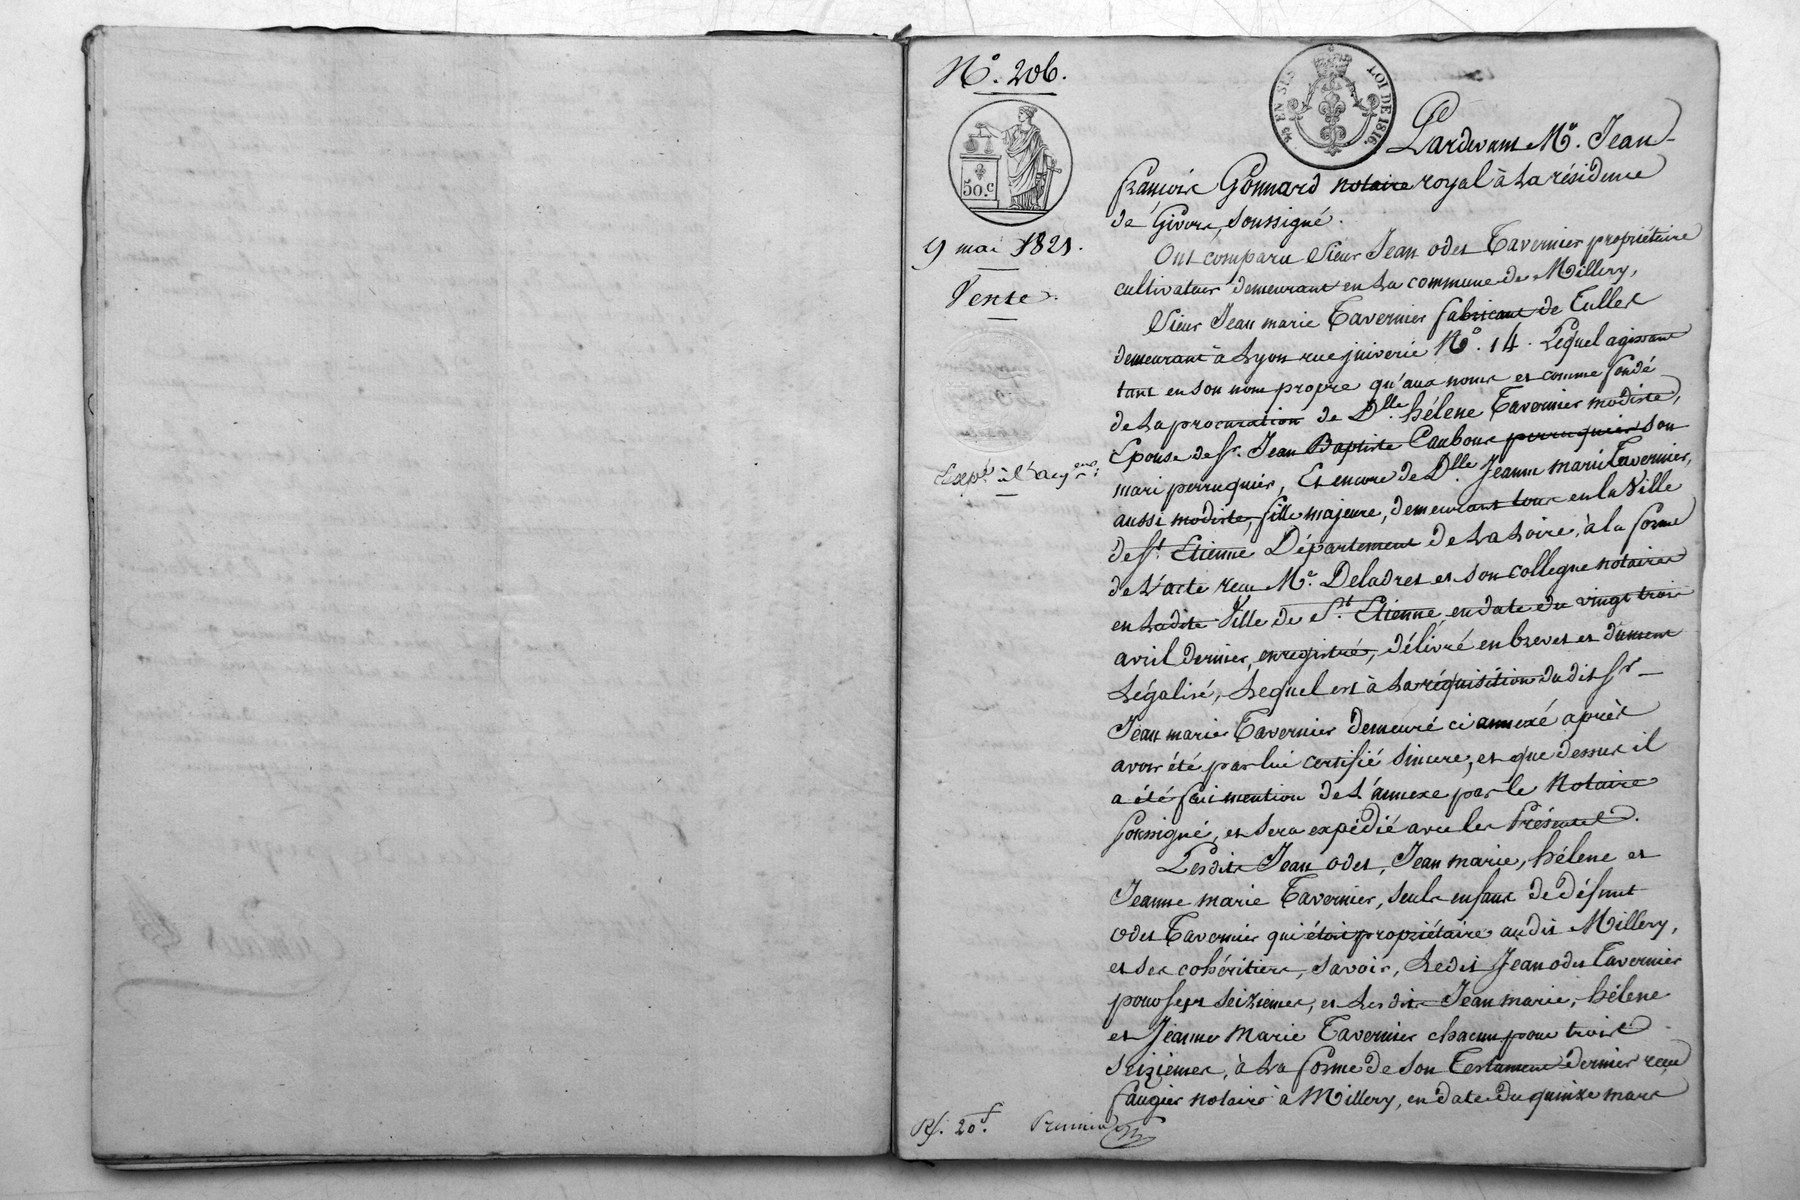 N.° 206.
EN SUS
LOI DE 1816.
50.c
9 mai 1821.
Vente.
Exp.é à l'acq.
Pardevant M.e Jean
françois Gonnard notaire royal à la résidence
de Givors, soussigné.
Ont comparu Sieur Jean odet Tavernier propriétaire
cultivateur demeurant en la commune de Millery,
Sieur Jean marie Tavernier fabricant de Tulles
demeurant à Lyon rue juiverie N.° 14. Lequel agissant
tant en son nom propre qu'aux noms et comme fondé
de la procuration de D.lle hélene Tavernier modiste,
Epouse de S.r Jean Baptiste perruquier son
mari perruquier, Et encore de D.lle Jeanne marie Tavernier,
aussi modiste, fille majeure, demeurant tous en la Ville
de S.t Etienne Département de la Loire, à la forme
de L'acte reçu M.e Deladret et son collegue notaires
en Ladite Ville de S.t Etienne, en date du vingt trois
avril dernier, enregistré, délivré en brevet et dument
Légalisé, Lequel est à la réquisition dudit S.r
Jean marie Tavernier demeuré ci annexé après
avoir été par lui certifié sincere, et que dessus il
a été fait mention de L'annexe par le Notaire
soussigné, et sera expédié avec les Présentes.
Lesdits Jean odet, Jean marie, hélene et
Jeanne marie Tavernier, seuls enfans de défunt
odet Tavernier qui étoit propriétaire audit Millery,
et ses cohéritiers, savoir, Ledit Jean odet Tavernier
pour sept seiziemes, et Lesdits Jean marie, hélene
et Jeanne Marie Tavernier chacun pour trois
seiziemes, à la forme de son Testament dernier reçu
faugier notaire à Millery, en date du quinze mars
Rf. 20.f Premier